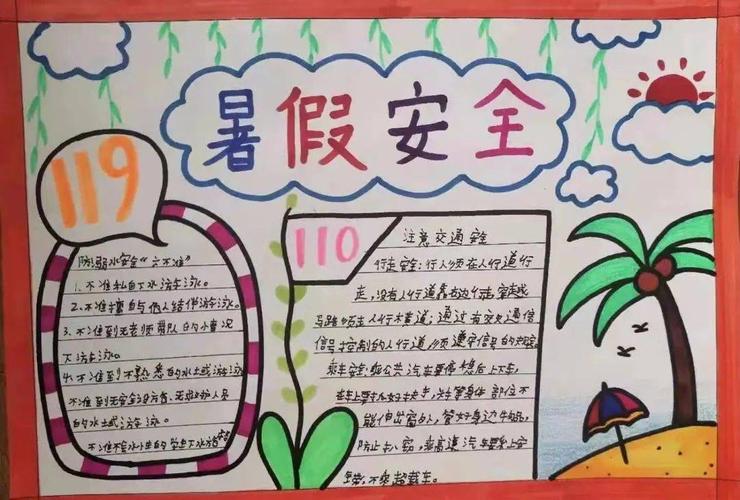 暑假安全
119
防溺水安全“六不准”
1.不准私自下水游泳。
2.不准擅自与他人结伴游泳。
3.不准到无老师带队的小情况
下游泳。
4.不准到不熟悉的水域游泳
不准到无安全设施、无救护人员
的水域游泳。
不准不会水性的学生下水
110
注意交通安全
行走安全:行人须在人行道行
走,没有人行道靠右边行走穿越
马路须走人行横道;通过有交通信
信号控制的人行道须遵守信号的
乘车安全:乘公共汽车要停稳后上下车,
在车上要扶好,头等身体部位不
能伸出窗外,管好身边
防止扒窃,乘高速汽车要系上安
全带,不乘超载车。